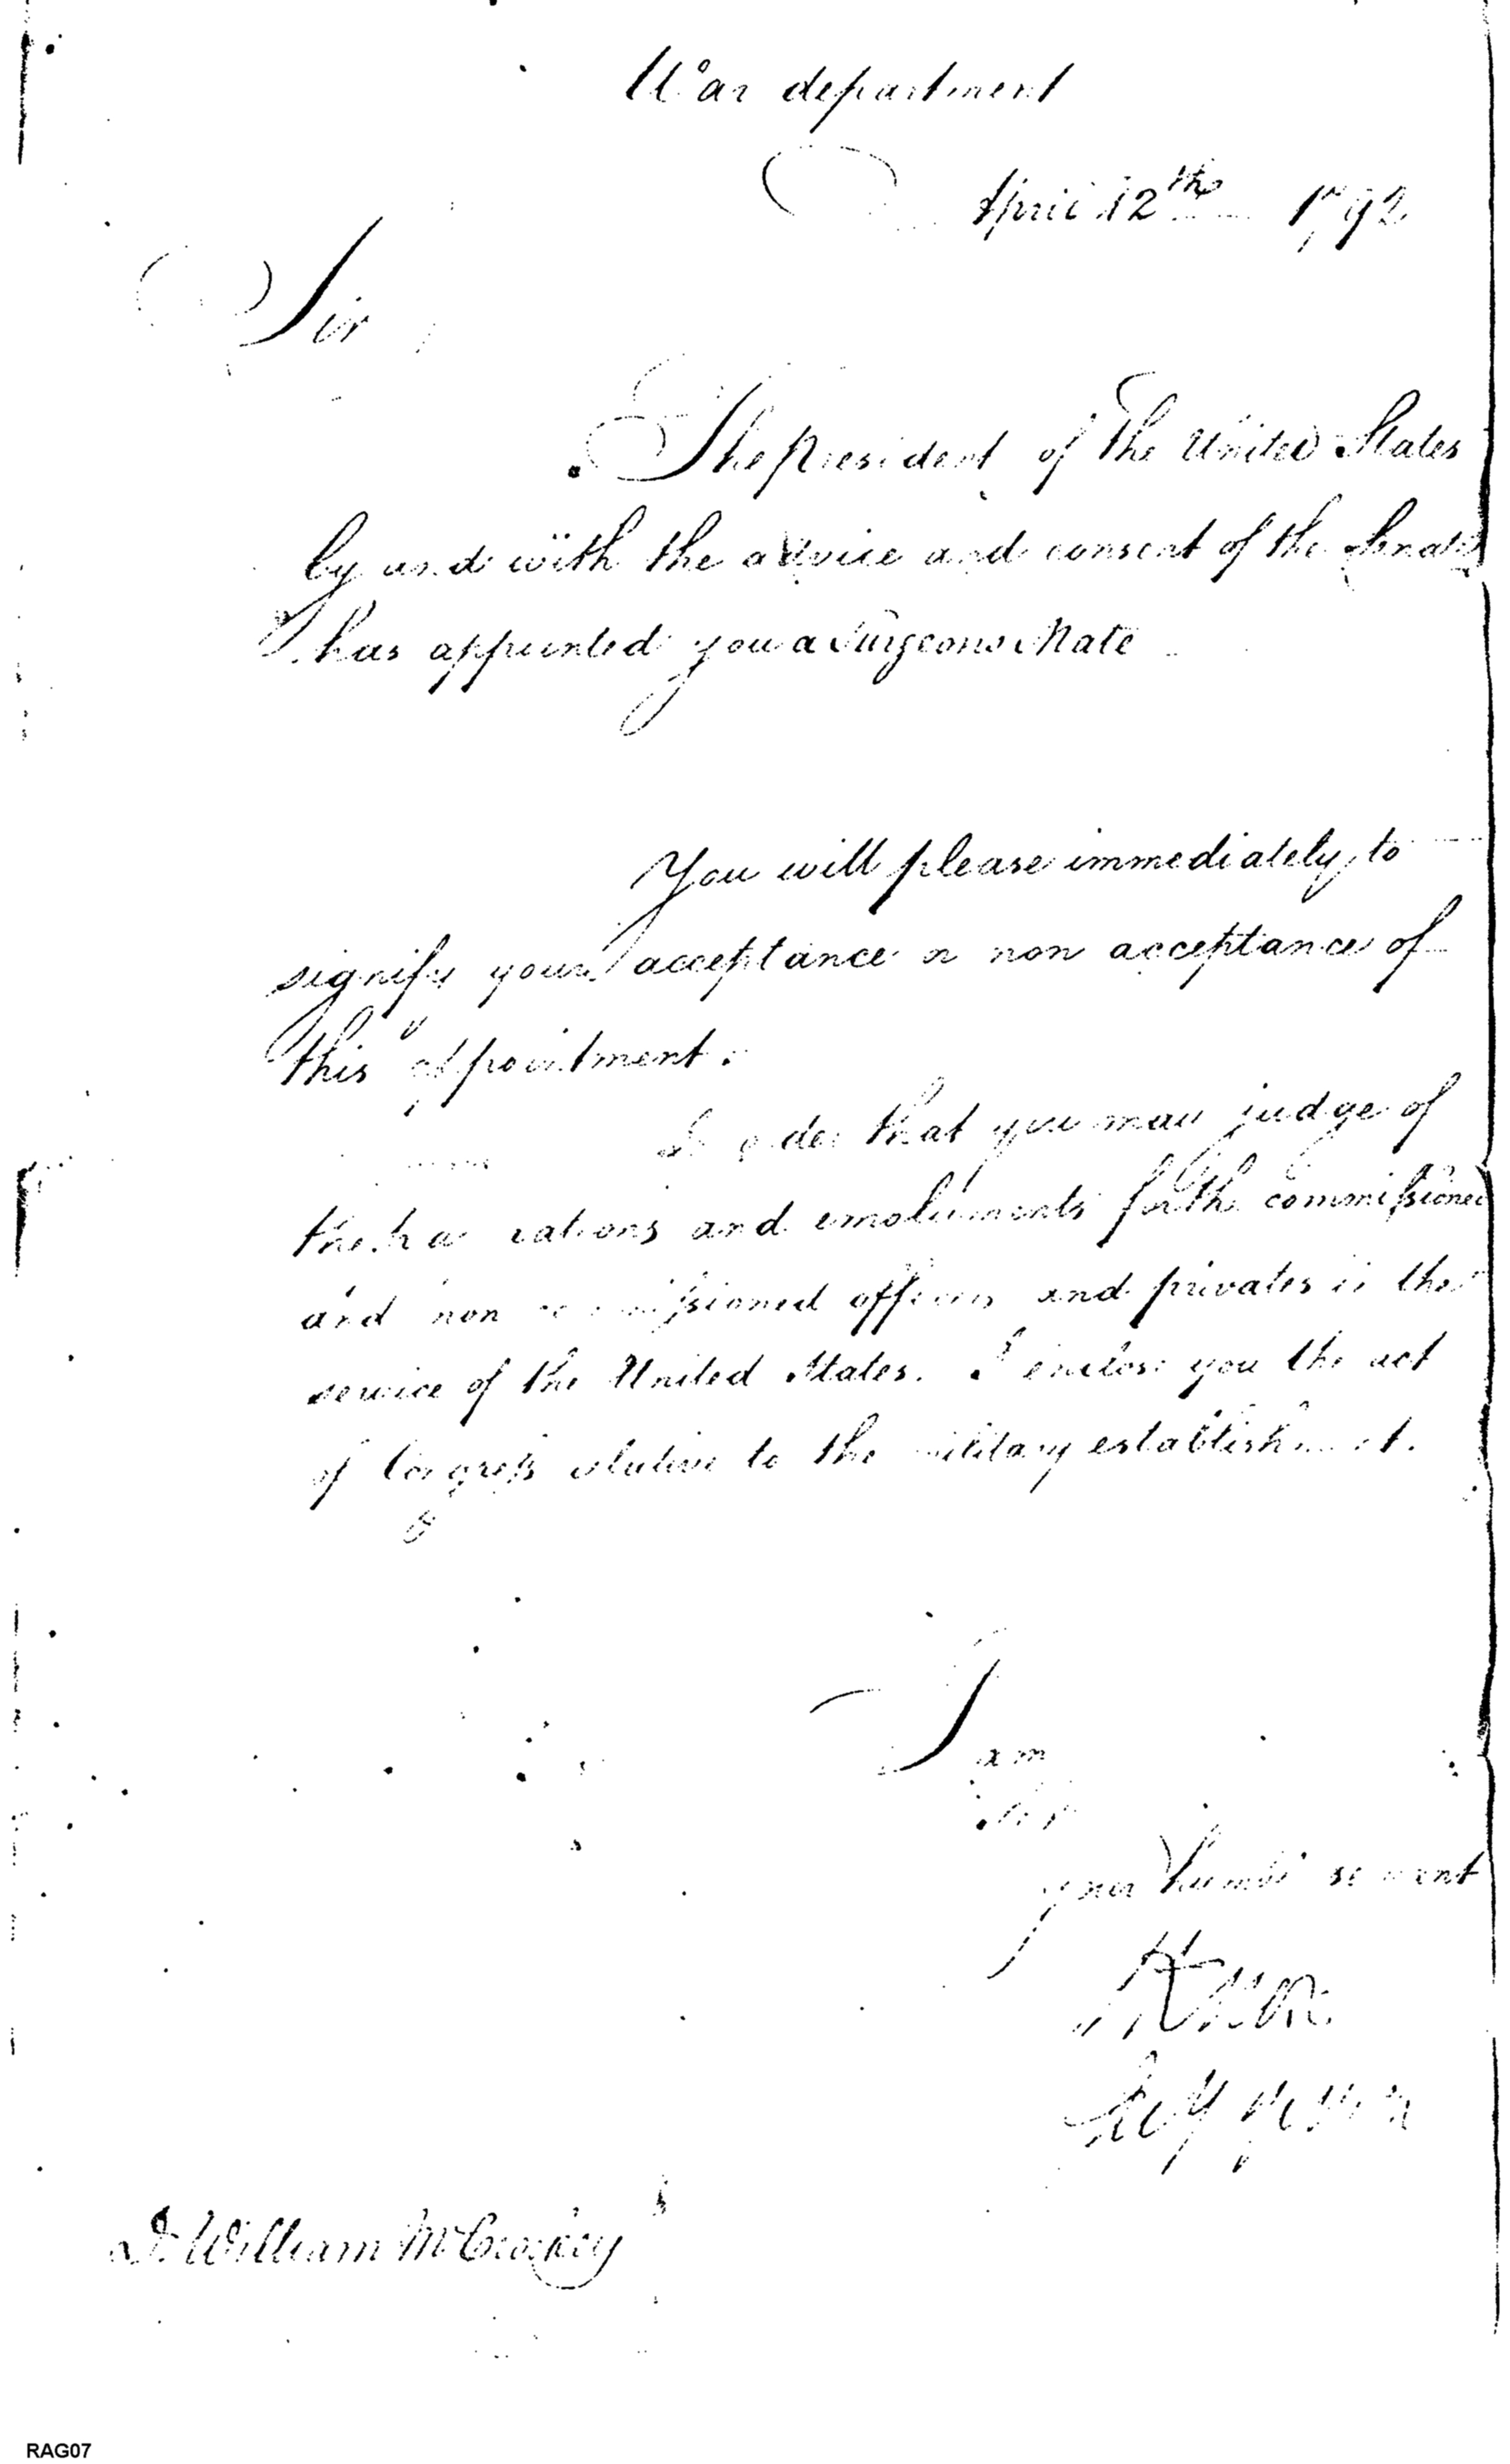 War department
April 12th 1792
Sir
The president of the United States
by and with the advice and consent of the Senate
has appointed you a Surgeons Mate
You will please immediately to
signify your acceptance or non acceptance of
this appointment.
In order that you may judge of
the pay rations and emoluments for the commissioned
and non commissioned officers and privates in the
service of the United States. I enclose you the act
of Congress relative to the military establishment.
I am
Sir
your humble servant
H Knox
Secy of War
Dr. William McCroskey
RAG07